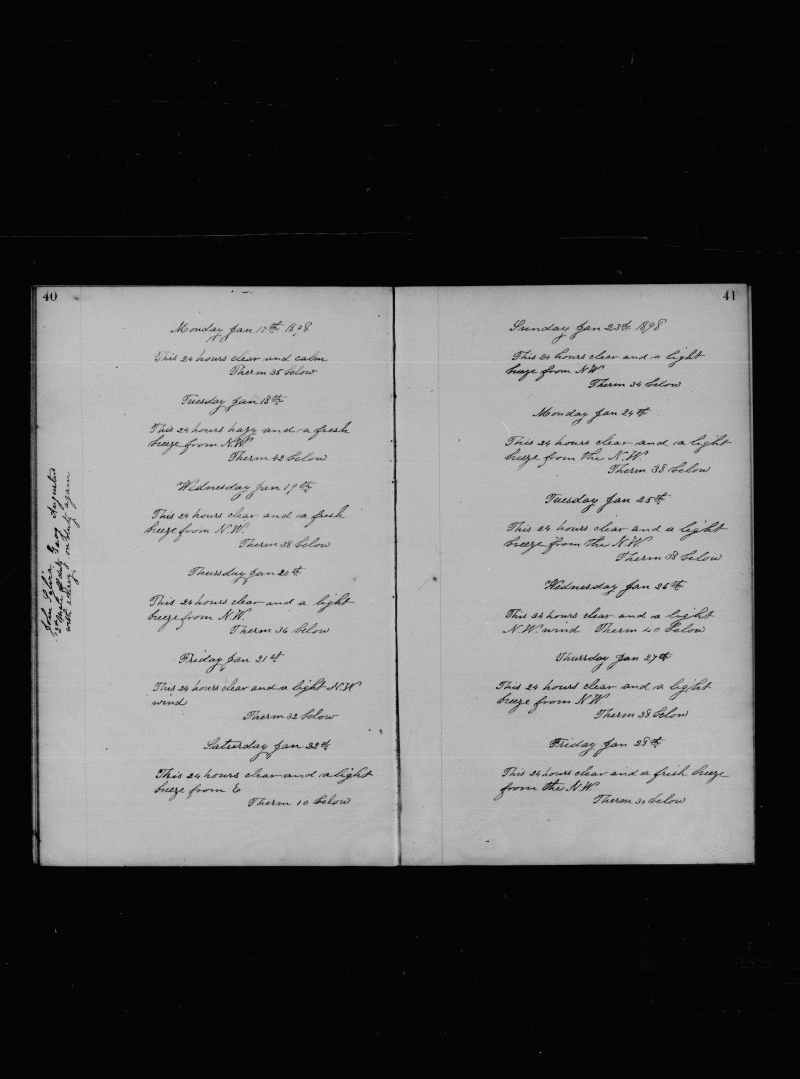 40
Monday Jan 17th 1898
This 24 hours clear and calm
Therm 35 below
Tuesday Jan 18th
This 24 hours hazy and a fresh
breeze from N.W.
Therm 42 below
Wednesday Jan 19th
This 24 hours clear and a fresh
breeze from N.W.
Therm 38 below
Thursday Jan 20th
This 24 hours clear and a light
breeze from N.W.
Therm 36 below
Friday Jan 21st
This 24 hours clear and a light N.W
wind
Therm 32 below
Saturday Jan 22th
This 24 hours clear and a light
breeze from E
Therm 10 below
John Sylvia
Augustus
with on duty again
41
Sunday Jan 23th 1898
This 24 hours clear and a light
breeze from N.W
Therm 34 below
Monday Jan 24th
This 24 hours clear and a light
breeze from the N.W.
Therm 38 below
Tuesday Jan 25th
This 24 hours clear and a light
breeze from the N.W
Therm 38 below
Wednesday Jan 26th
This 24 hours clear and a light
N.W. wind Therm 40 below
Thursday Jan 27th
This 24 hours clear and a light
breeze from N.W
Therm 38 below
Friday Jan 28th
This 24 hours clear and a fresh breeze
from the N.W
Therm 30 below